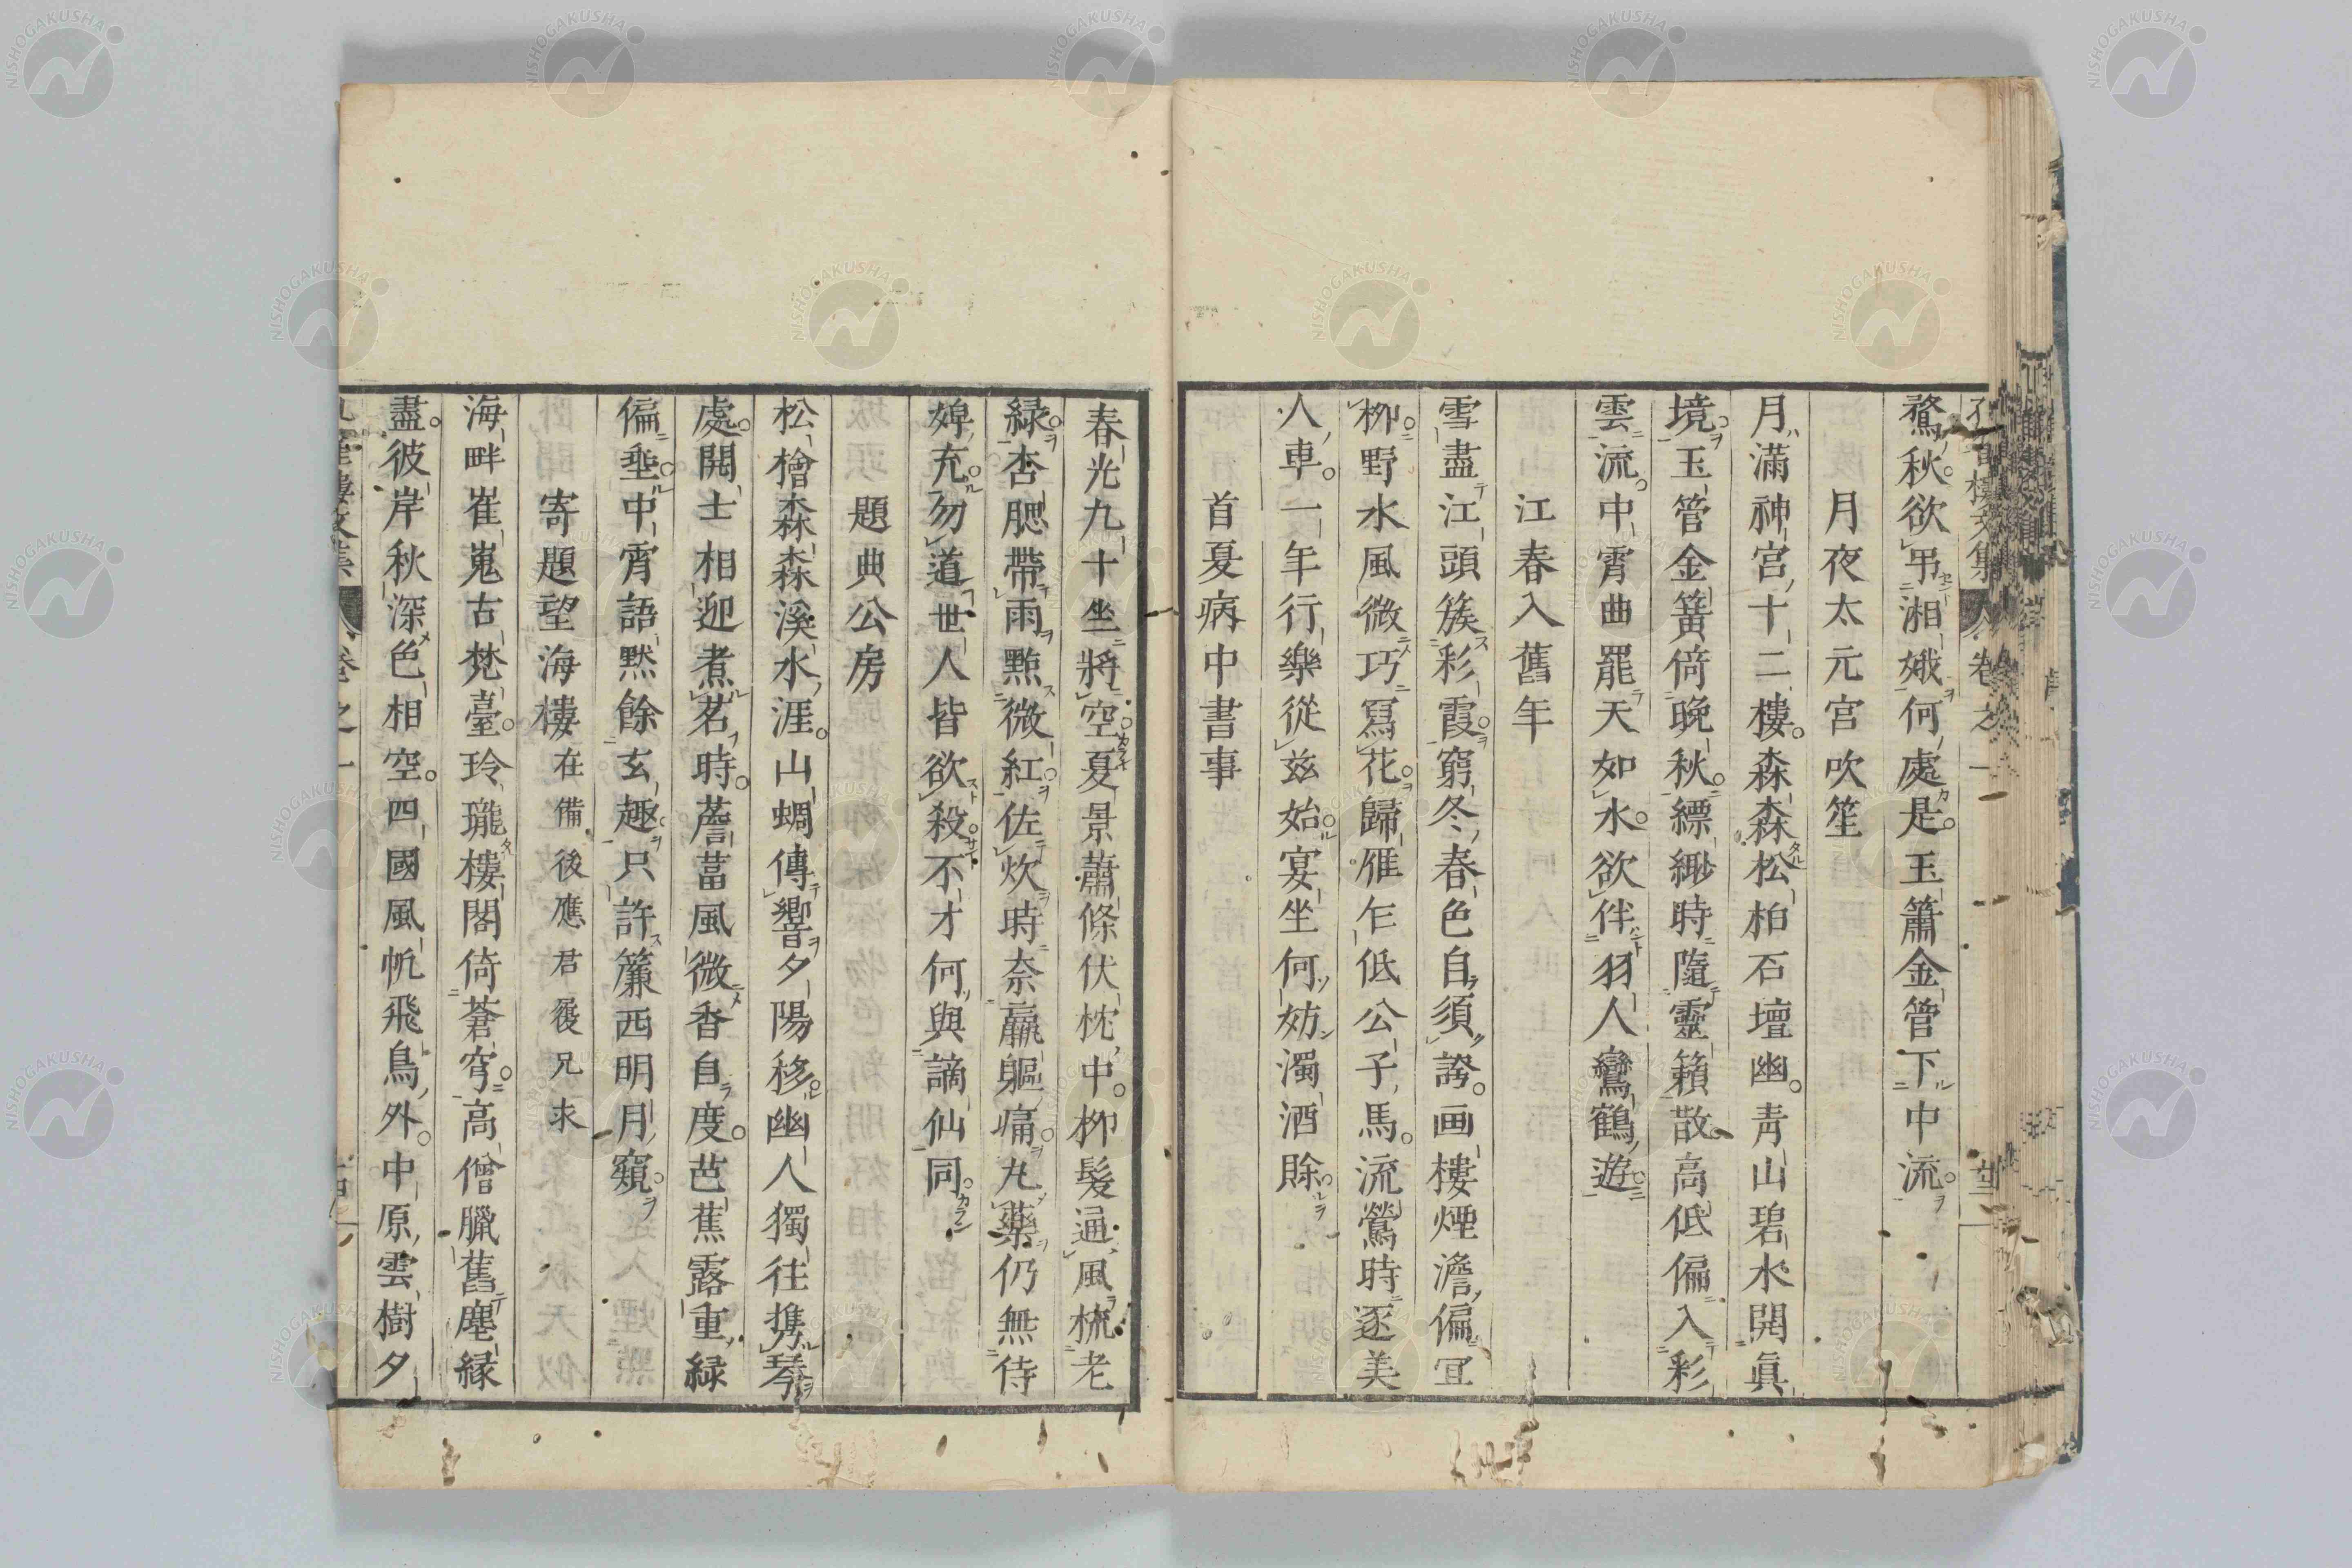 鶩秋欲弔湘娥何處是玉簫金管下中流
月夜太元宮吹笙
月滿神宮十二樓森森松柏石壇幽青山碧水開眞
境玉管金簧倚晚秋縹緲時隨靈籟散高低偏入彩
雲流中霄曲罷天如水欲伴羽人鸞鶴遊
江春入舊年
雪盡江頭簇彩霞窮冬春色自須誇画樓煙澹偏宜
柳野水風微巧寫花歸雁乍低公子馬流鶯時逐美
人車一年行樂從玆始宴坐何妨濁酒賖
首夏病中書事
春光九十坐將空夏景蕭條伏枕中柳髮通風梳老
緑杏腮帶雨點微紅佐炊時奈羸軀痛丸藥仍無侍
婢充勿道世人皆欲殺不才何與謫仙同
題典公房
松檜森森溪水涯山蜩傳響夕陽移幽人獨往携琴
處開士相迎煮茗時薝蔔風微香自度芭蕉露重緑
偏垂中宵語黙餘玄趣只許簾西明月窺
寄題望海樓 在備後應君復兄求
海畔崔嵬古梵臺玲瓏樓閣倚蒼穹高僧臘舊塵縁
盡彼岸秋深色相空四國風帆飛鳥外中原雲樹夕
樓文集 卷之一
NISHOGAKUSHA